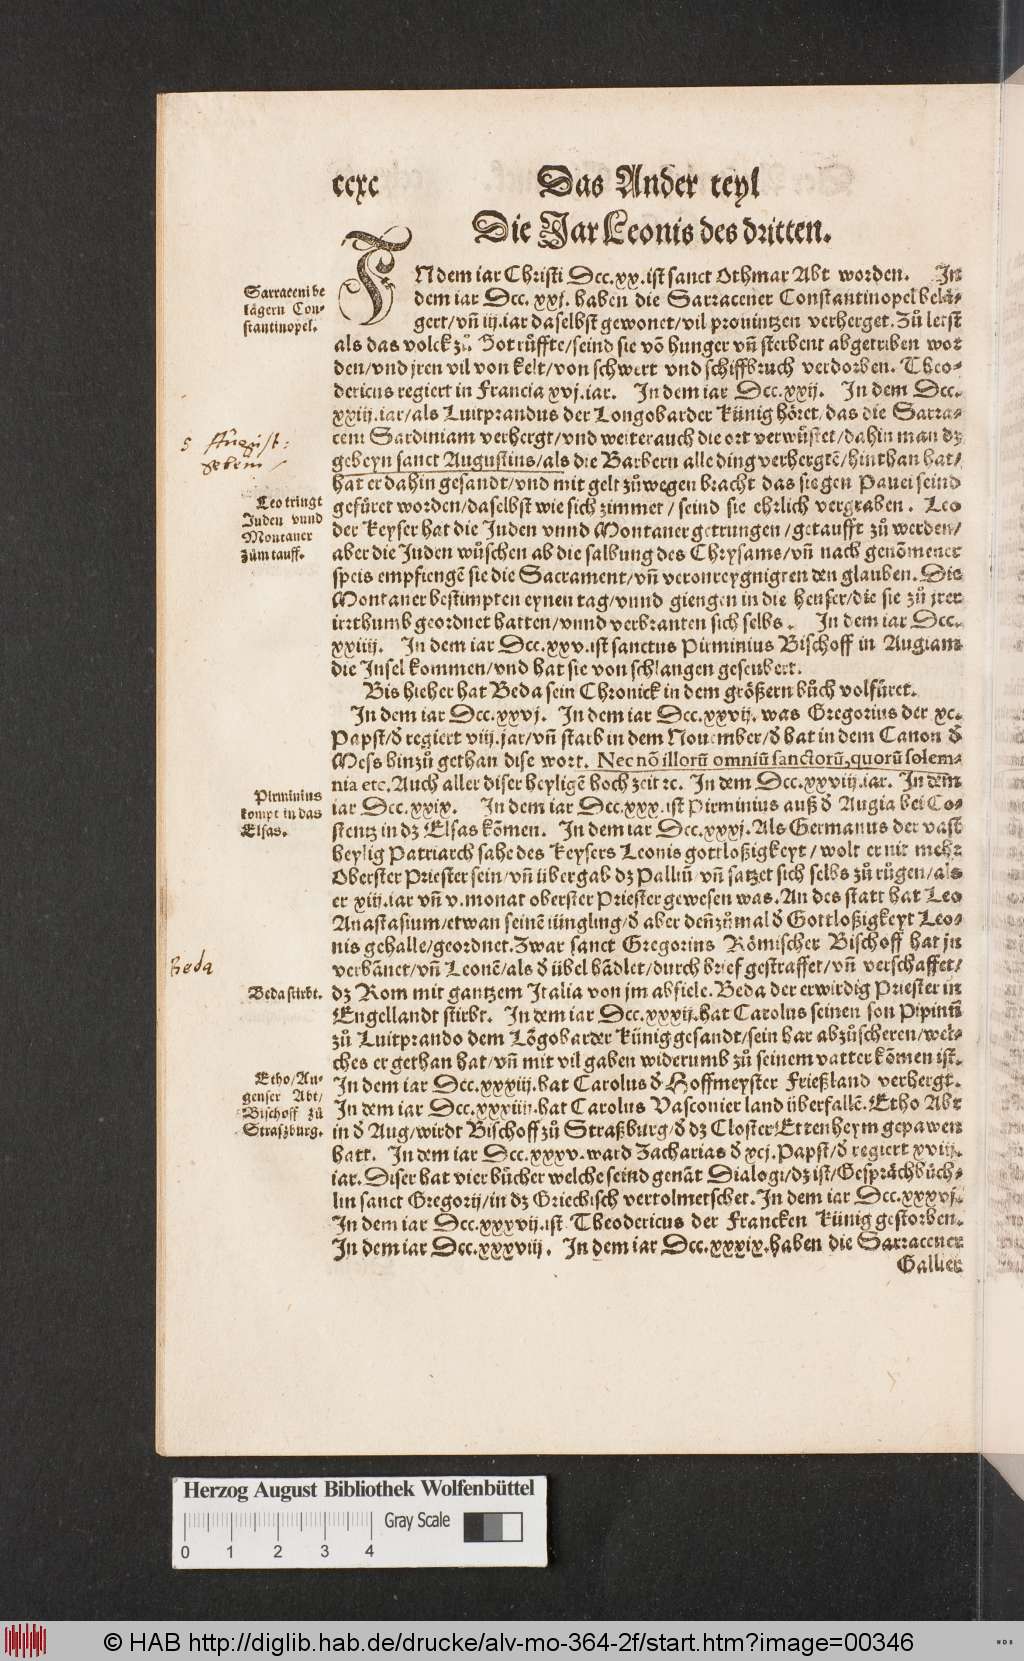 ccxc Das Ander teyl
Die Jar Leonis des dritten.
Sarraceni be
lägern Con-
stantinopel.
JN dem iar Christi Dcc.xx. ist sanct Othmar Abt worden. In
dem iar Dcc. xxj. haben die Sarracener Constantinopel belä-
gert/vñ iij.iar daselbst gewonet/vil prouintzen verherget. Zů letst
als das volck zů Got rüffte/seind sie võ hunger vñ sterbent abgetriben wor
den/vnd jren vil von kelt/von schwert vnd schiffbruch verdorben. Theo-
dericus regiert in Francia xvj.iar. In dem iar Dcc.xxij. In dem Dcc.
xxiij.iar/als Luitprandus der Longobarder Künig höret/das die Sarra-
ceni Sardiniam verhergt/vnd weiter auch die ort verwüstet/dahin man dz
gebeyn sanct Augustins/als die Barbern alle ding verhergtē/hinthan hat/
hat er dahin gesandt/vnd mit gelt zůwegen bracht das sie gen Pauei seind
gefüret worden/daselbst wie sich zimmet/seind sie ehrlich vergraben. Leo
der Keyser hat die Juden vnnd Montaner getrungen/getaufft zů werden/
aber die Juden wůschen ab die salbung des Chrysams/vñ nach genōmener
speis empfiengē sie die Sacrament/vñ veronreygnigten den glauben. Die
Montaner bestimpten eynen tag/vnnd giengen in die heuser/die sie zů jrer
irrthumb geordnet hatten/vnnd verbranten sich selbs. In dem iar Dcc.
xxiiij. In dem iar Dcc.xxv.ist sanctus Pirminius Bischoff in Augiam
die Insel kommen/vnd hat sie von schlangen geseubert.
s Augüst:
gebein
Leo tringt
Juden vnnd
Montaner
zům tauff.
Bis hieher hat Beda sein Chronick in dem grössern bůch volfüret.
In dem iar Dcc.xxvj. In dem iar Dcc.xxvij. was Gregorius der xc.
Papst/đ regiert viij.jar/vñ starb in dem Nouember/đ hat in dem Canon đ
Mess hinzů gethan dise wort. Nec nõ illorũ omniũ sanctorũ, quorũ solem-
nia etc. Auch aller diser heyligē hoch zeit ꝛc. In dem Dcc.xxviij.iar. In dem
iar Dcc.xxix. In dem iar Dcc.xxx.ist Pirminius auß đ Augia bei Co-
stentz in dz Elsas kōmen. In dem iar Dcc.xxxj. Als Germanus der vast
heylig Patriarch sahe des Keysers Leonis gottloßigkeyt/wolt er nit mehr
Oberster Priester sein/vñ übergab dz Palliũ/vñ satzet sich selbs zů růgen/als
er xiij.iar vñ v.monat oberster Priester gewesen was. An des statt hat Leo
Anastasium/etwan seinē iüngling/đ aber deñzůmal đ Gottloßigkeyt Leo-
nis gehalle/geordnet. Zwar sanct Gregorius Römischer Bischoff hat jn
verbãnet/vñ Leonē/als đ übel hãdlet/durch brief gestraffet/vñ verschaffet/
dz Rom mit gantzem Italia von jm abfiele. Beda der erwirdig Priester in
Engellandt stirbt. In dem iar Dcc.xxxij.hat Carolus seinen son Pipinũ
zů Luitprando dem Lõgobarder Künig gesandt/sein har abzůscheren/wel-
ches er gethan hat/vñ mit vil gaben widerumb zů seinem vatter kōmen ist.
In dem iar Dcc.xxxiij.hat Carolus đ Hoffmeyster Frießland verhergt.
In dem iar Dcc.xxxiiij.hat Carolus Vasconier land überfallē. Etho Abt
in đ Aug/wirdt Bischoff zů Straßburg/đ dz Closter Ettenheym gepawen
hatt. In dem iar Dcc.xxxv.ward Zacharias đ xcj. Papst/đ regiert xviij.
iar. Diser hat vier bücher welche seind genãt Dialogi/dz ist/Gesprächbüch-
lin sanct Gregorij/in dz Griechisch vertolmetschet. In dem iar Dcc.xxxvj.
In dem iar Dcc.xxxvij.ist Theodericus der Francken Künig gestorben.
In dem iar Dcc.xxxviij. In dem iar Dcc.xxxix.haben die Sarracener
Gallier
Pirminius
kompt in das
Elsas.
Beda
Beda stirbt.
Etho/Au-
genser Abt/
Bischoff zů
Straszburg.
Herzog August Bibliothek Wolfenbüttel
Gray Scale
0 1 2 3 4
© HAB http://diglib.hab.de/drucke/alv-mo-364-2f/start.htm?image=00346